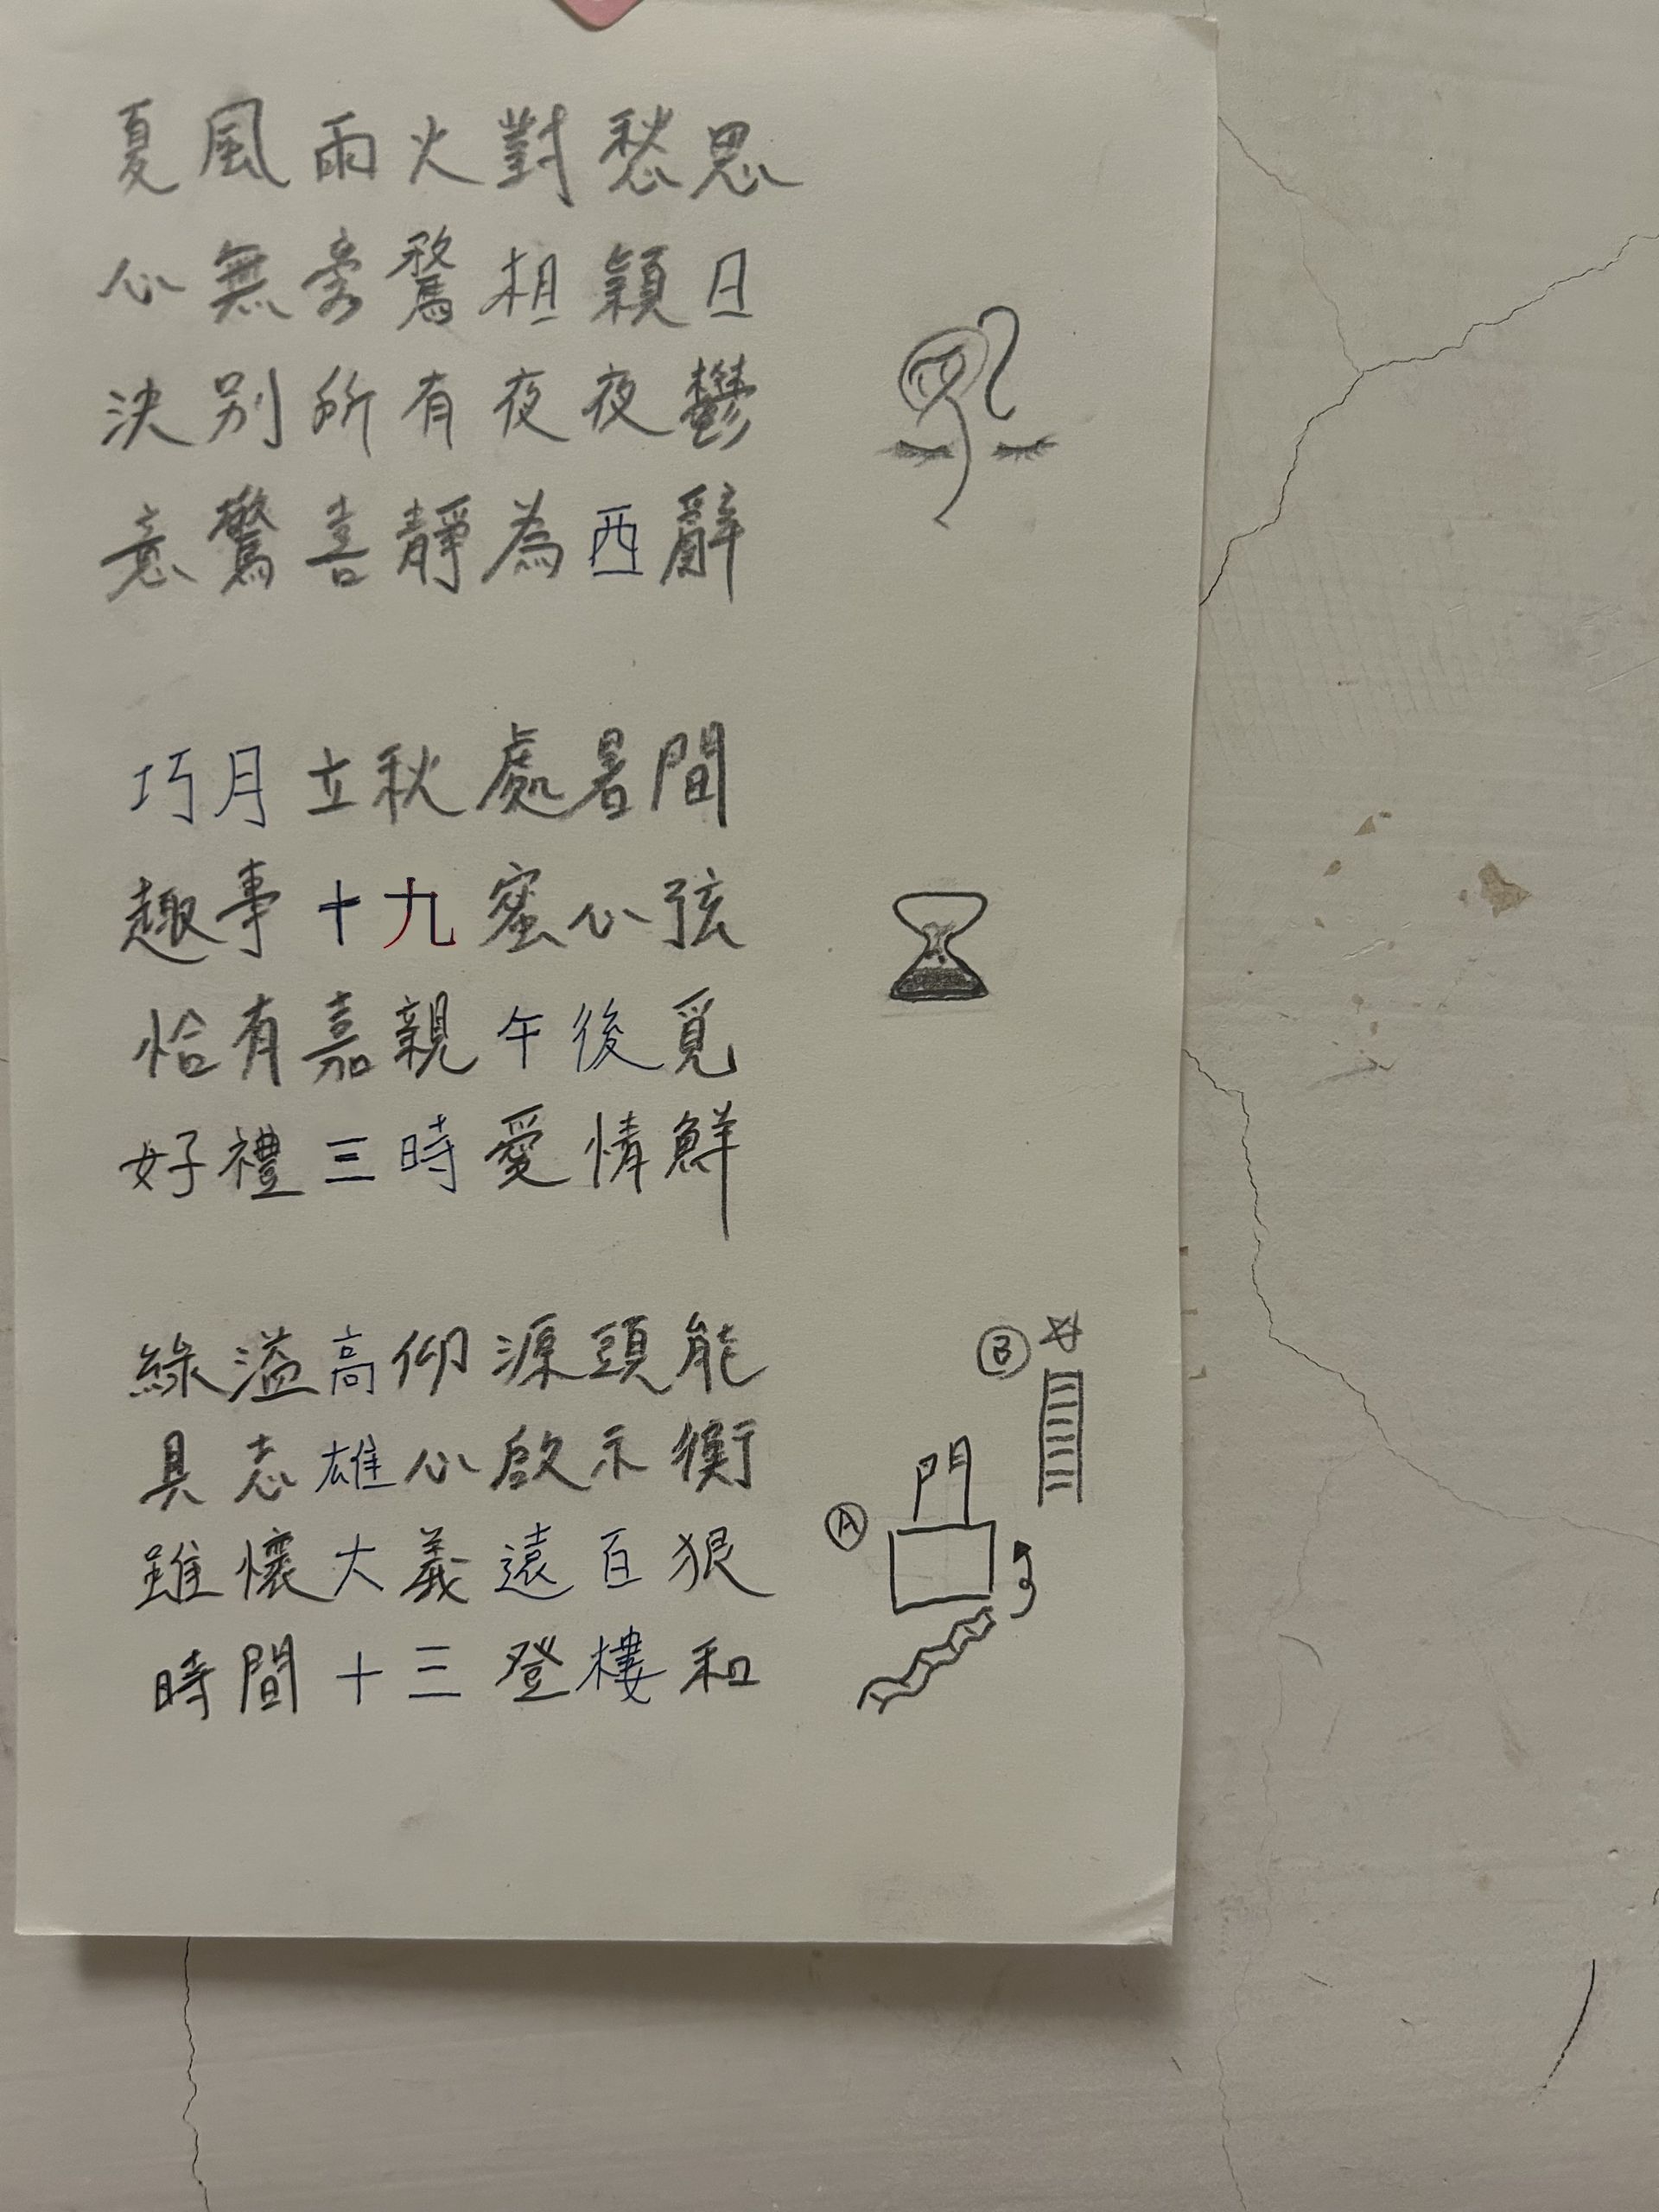 夏風雨火對愁思
心無旁騖相穎日
決別所有夜夜鬱
意驚喜靜為西辭
巧月立秋處暑間
趣事十九蜜心弦
恰有嘉親午後覓
好禮三時愛情鮮
綠溢高仰源頭能
具志雄心啟示衡
雖懷大義遠百狠
時間十三登樓和
B
門
A